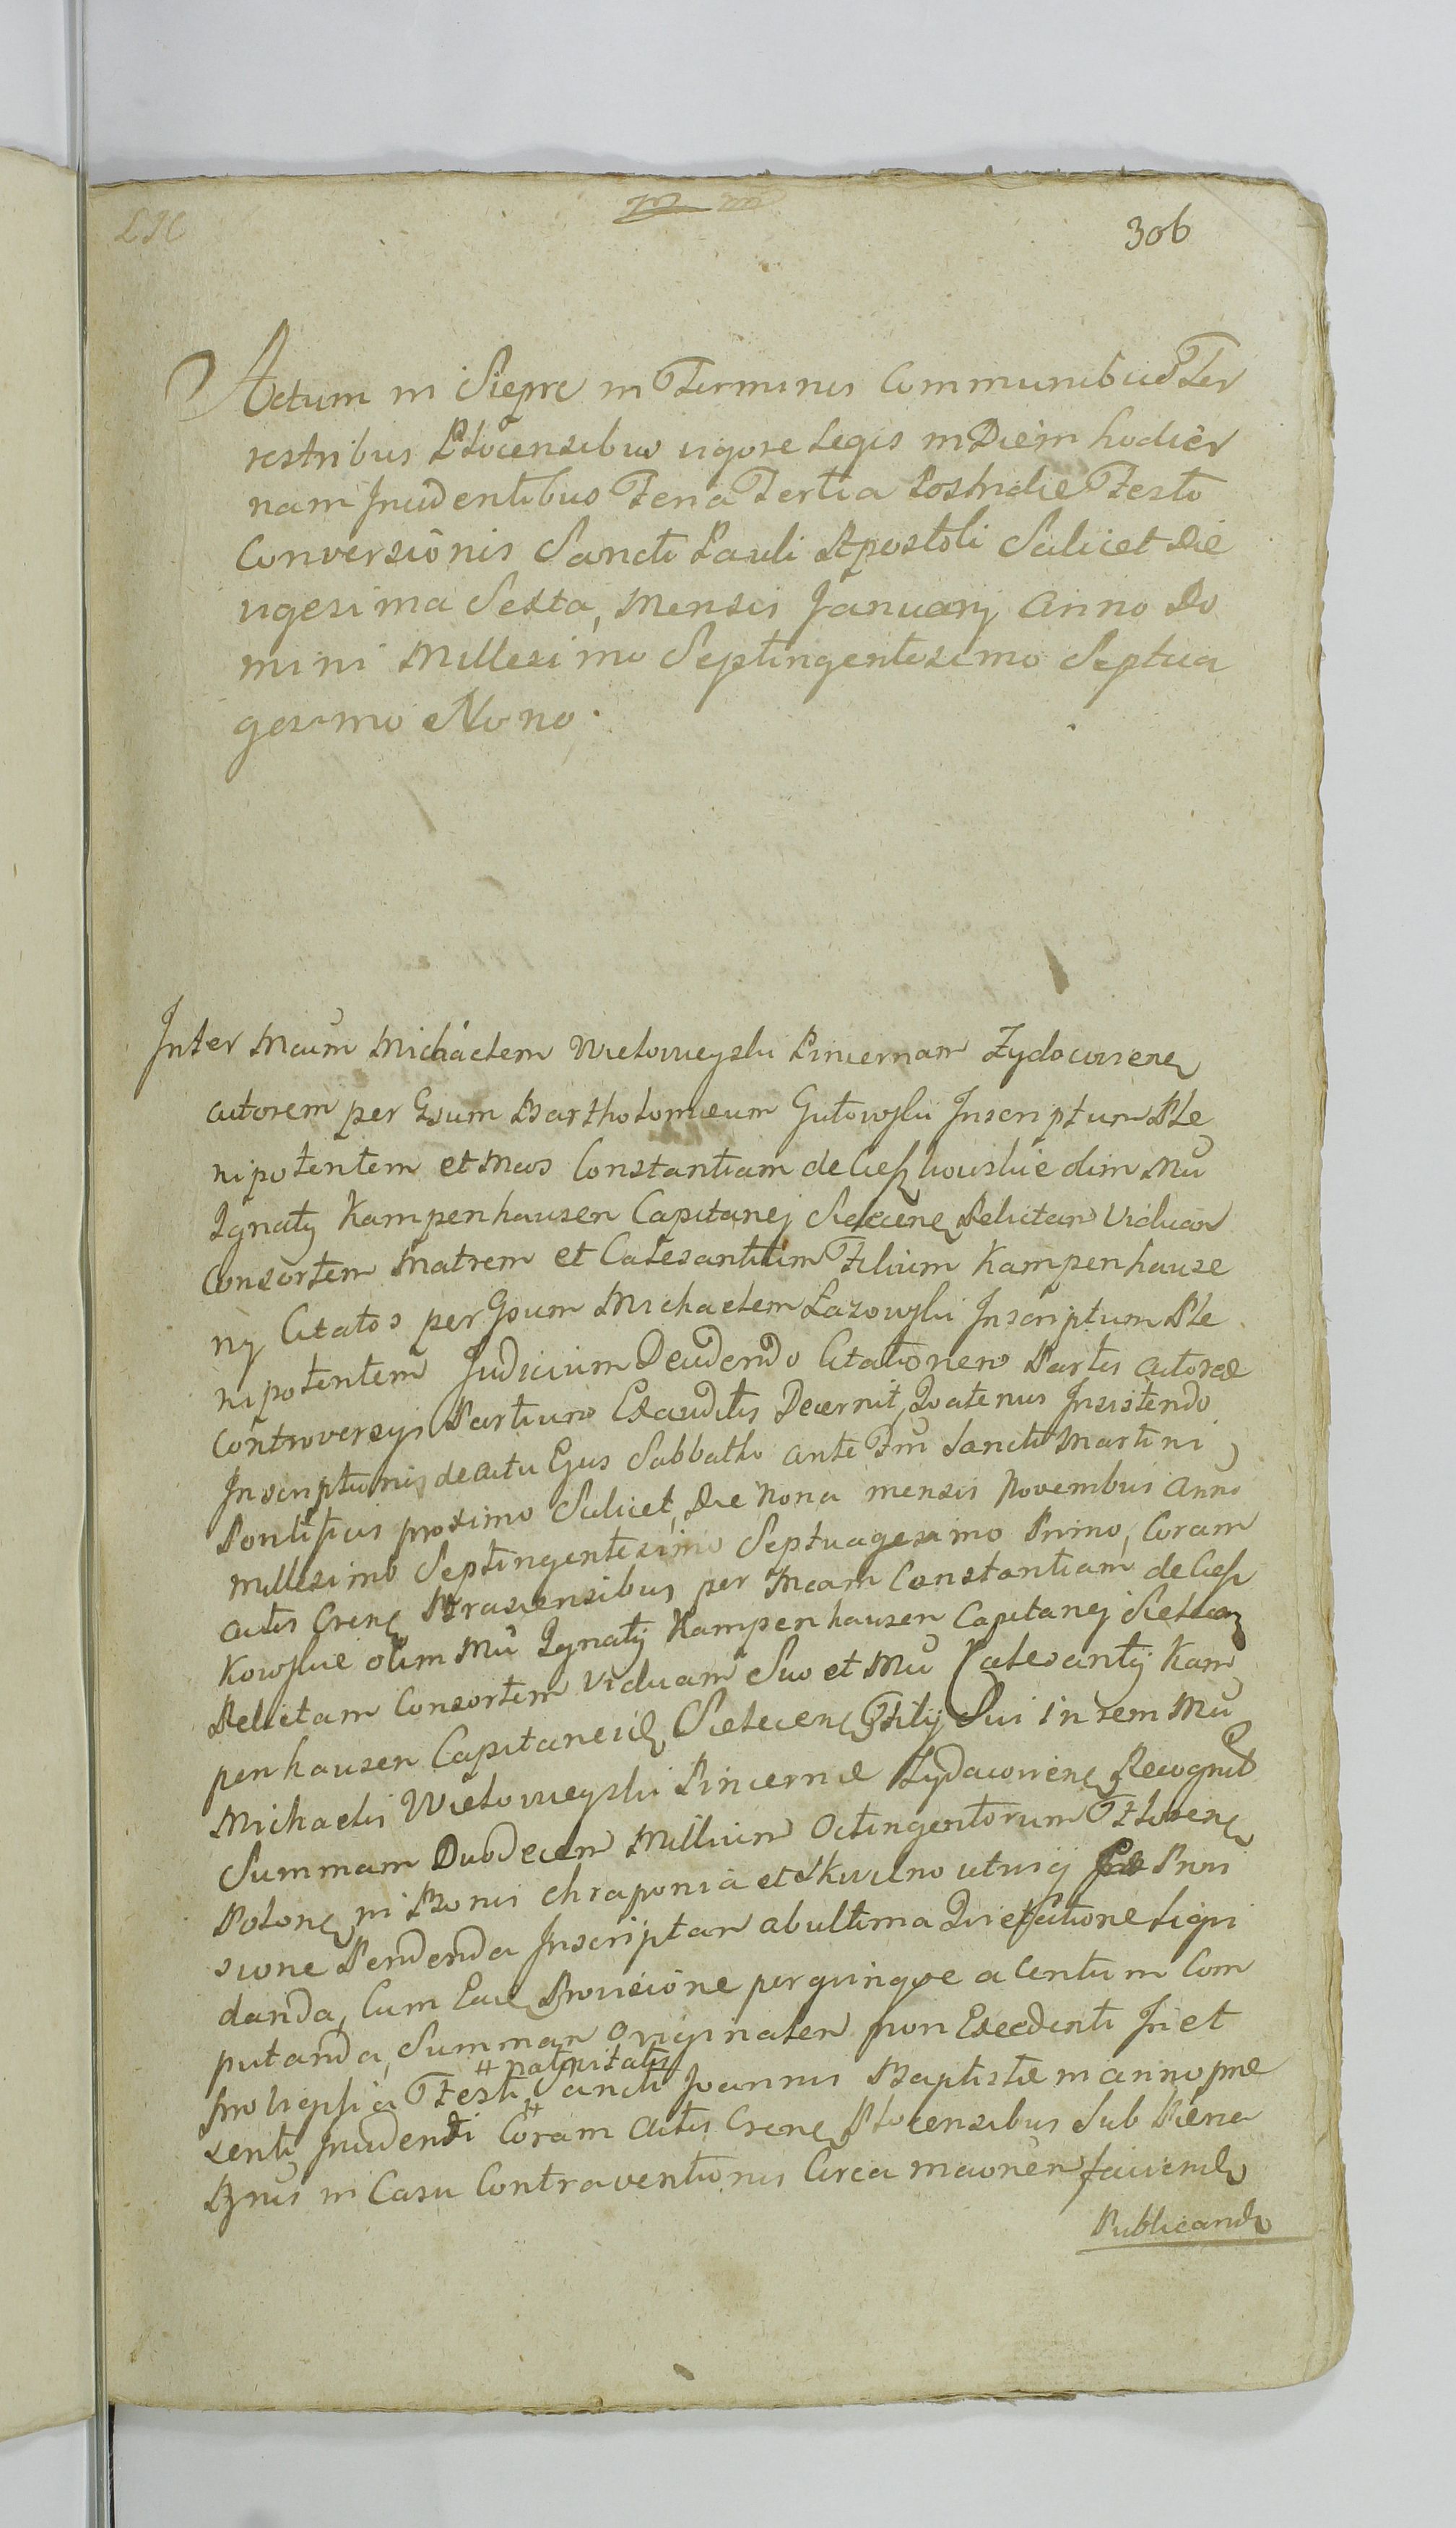 306
Actum in Siepre in Terminis Communibus Ter
restribus Plocensibus vigore Legis in Diem hodier
nam Incidentibus Feria Tertia Postridie Festi
Conversionis Sancti Pauli Apostoli Scilicet Die
vigesima Sexta, Mensis Januarij Anno Do
mini Millesimo Septingentesimo Septua
gesimo Nono.
Inter Mcum Michaelem Wielowieyski Pincernam Zydaczoviens
actorem per Gsum Bartholomeum Gutowski Inscriptum Ple
nipotentem et Mcos Constantiam de Cieszkowskie olim Mci
Ignatij Kampenhausen Capitanej Sielecens Relictam Viduam
Consortem Matrem et Calesantium Filium Kampenhause
nij Citatos per Gsum Michaelem Lazowski Inscriptum Ple
nipotentem Judicium Decidendo Citationem Partis actoreæ
Controversijs Partium Exauditis Decernit, Quatenus Insistendo
Inscriptionis de actu Ejus Sabbatho ante Ftum Sancti Martini
Pontificis proximo Scilicet, Die Nona mensis Novembris Anno
millesimo Septingentesimo Septuagesimo Primo, Coram
actis Crens Brasensibus per Mcam Constantiam de Ciesz
kowskie olim Mci Ignatij Kampenhausen Capitanej Sielecens
Relictam Consortem Viduam Suo et Mci Calesantij Kam
penhausen Capitanei Sielecens Filij Sui in rem Mci
Michaelis Wielowieyski Pincernæ Zydaczoviens Recognit
Summam Duodecem Millium Octingentorum Florens
Polons in Bonis Chraponia et Skwilno utrisq Provi
sione Pendenda Inscriptam ab ultima Quietatione Liqui
danda, Cum Eadem Provisione per quinque a Centum Com
putanda, Summam Originalem non Excedenti In et
# nativitatis
pro Festi # Sancti Joannis Baptistæ in anno præ
senti Incidenti Coram Actis Crens Plocensibus Sub Pæna
Bnis in Casu Contraventionis Circa
Publicand